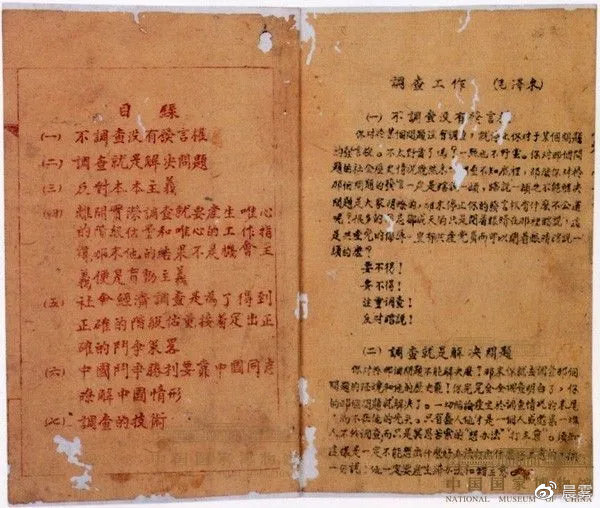 目録
(一) 不調查没有發言權
(二) 調查就是解决問題
(三) 反對本本主義
(四) 離開實際調查就要產生唯心
的階級估量和唯心的工作指
導那末他的結果不是機會主
義便是盲動主義
(五) 社會經濟調查是為了得到
正確的階級估量接着定出正
確的鬥爭策畧
(六) 中國鬥爭勝利要靠中國同志
瞭解中國情形
(七) 調查的技術
調查工作 (毛澤東)
(一) 不調查没有發言權
你对於某個問題没有調查,就停止你对于某個問題
的發言權。不太野蛮了嗎?一点也不野蛮。你对那個问
題的社会歷史情况既然
那個問題的發言一定是瞎說一頓,瞎說一頓之不能解决
問題是大家明瞭的,那末停止你的發言权有什麽不公道
呢?很多的同志都成天的只是閉着眼睛在那裡瞎說,這
是共產党員的恥辱,豈有共產党員而可以閉着眼睛瞎說一
頓的麽?
要不得!
要不得!
注重調查!
反对瞎說!
(二) 調查就是解决問題
你对於那個問題不能解决麽?那末你就去調查那個
問題的現狀和他的歷史罷!你完完全全調查明白了,你
对那個問題就解决了。一切結論產生於調查情况的末尾
,而不在他的先头。只有蠢人
人不於調查而只是冥思苦索的"想办法""打主意"。須知
這樣是一定不能想出什麽好办法打出什麽好主意的
一句說:他一定要產生錯办法和錯主意。
中国国家
NATIONAL MUSEUM OF CHINA
晨霎